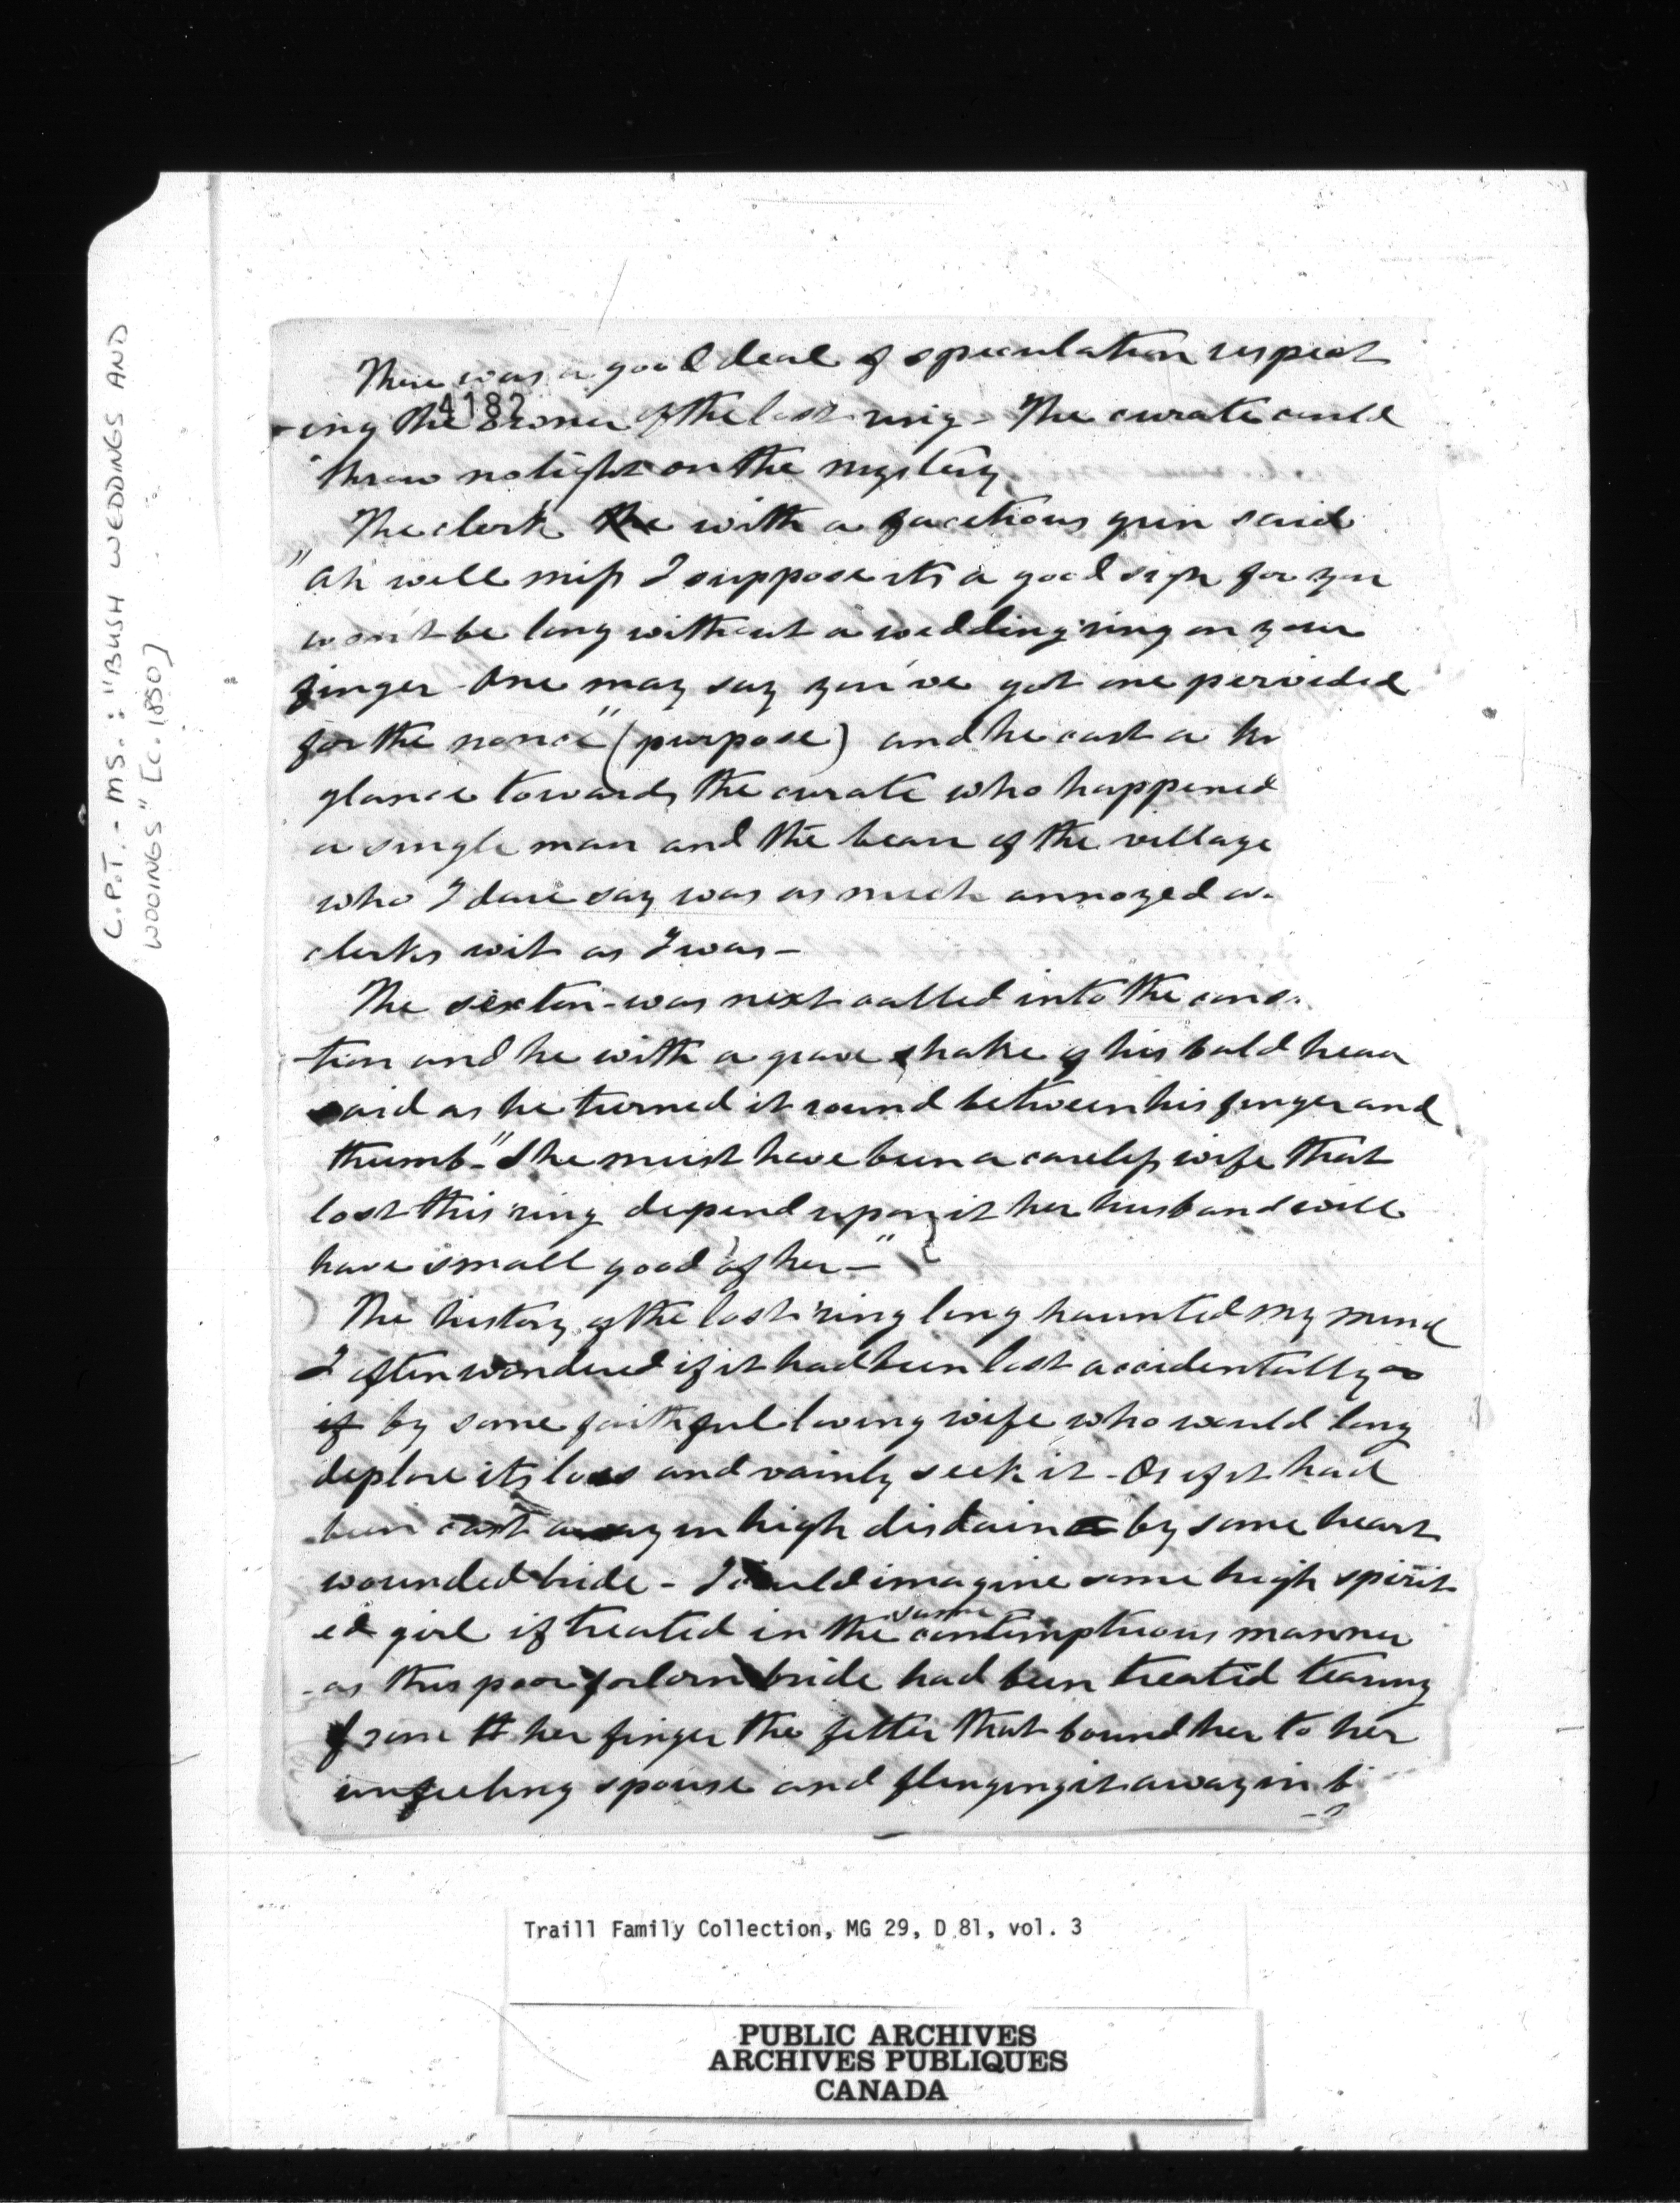 C.P.T. - MS.: "BUSH WEDDINGS AND
WOOINGS" [C. 1850]
There was a good deal of speculation respect
4182
-ing the owner of the lost ring - The curate could
throw no light on the mystery
The clerk the with a facetious grin said
"Ah well miss I suppose its a good sign for you
won't be long without a wedding ring on your
finger - One may say you've got one pervided
for the nonce" (purpose) and he cast a
glance towards the curate who happened
a single man and the beau of the village
who I dare say was as much annoyed
clerks wit as I was -
The sexton - was next called into the cons
-tion and he with a grave shake of his bald head
said as he turned it round between his finger and
thumb - "She must have been a careless wife that
lost this ring depend upon it her husband will
have small good of her - "
The history of the lost ring long haunted my mind
I often wondered if it had been lost accidentally or
if by some faithful loving wife who would long
deplore its loss and vainly seek it - Or if it had
been cast away in high disdain by some heart
wounded bride - I could imagine some high spirit
ed girl if treated in the same contemptuous manner
- as this poor forlorn bride had been treated tearing
from her finger the fetter that bound her to her
unfeeling spouse and flinging it away in
Traill Family Collection, MG 29, D 81, vol. 3
PUBLIC ARCHIVES
ARCHIVES PUBLIQUES
CANADA